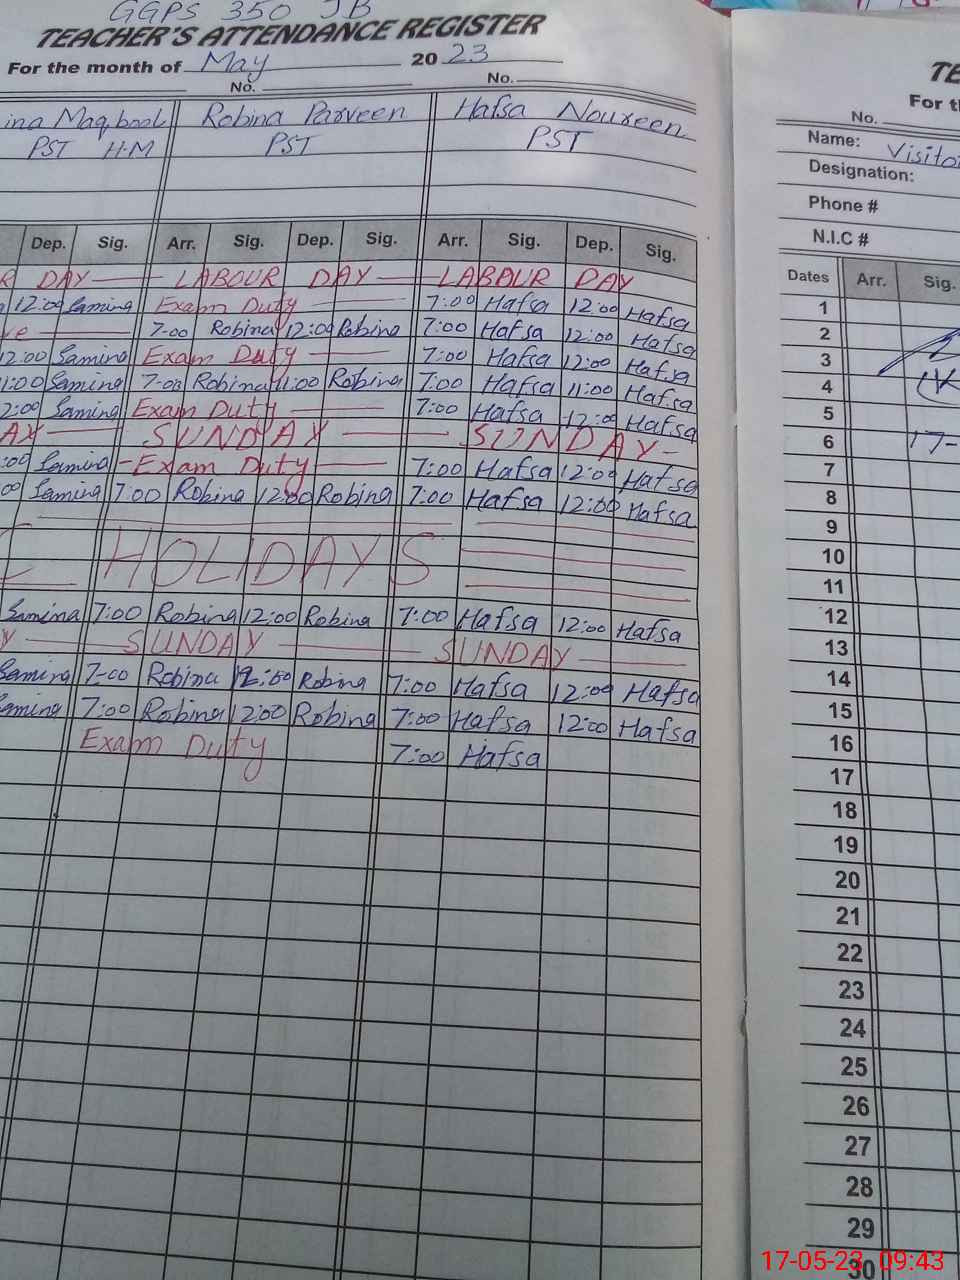 GGPS 350 JB
TEACHER'S ATTENDANCE REGISTER
For the month of May 2023
No. No.
ina Maqbool Robina Parveen Hafsa Noureen
PST H.M PST PST
Dep. Sig. Arr. Sig. Dep. Sig. Arr. Sig. Dep. Sig.
R DAY LABOUR DAY LABOUR DAY
12:00 Samina Exam Duty 7:00 Hafsa 12:00 Hafsa
ve 7-00 Robina 12:00 Robina 7:00 Hafsa 12:00 Hafsa
12:00 Samina Exam Duty 7:00 Hafsa 12:00 Hafsa
1:00 Samina 7-00 Robina 11:00 Robina 7:00 Hafsa 11:00 Hafsa
2:00 Samina Exam Duty 7:00 Hafsa 12:00 Hafsa
AY SUNDAY SUNDAY
:00 Samina Exam Duty 7:00 Hafsa 12:00 Hafsa
00 Samina 7:00 Robina 12:00 Robina 7:00 Hafsa 12:00 Hafsa
C HOLIDAYS
Samina 7:00 Robina 12:00 Robina 7:00 Hafsa 12:00 Hafsa
Y SUNDAY SUNDAY
Samina 7-00 Robina 12:00 Robina 7:00 Hafsa 12:00 Hafsa
amina 7:00 Robina 12:00 Robina 7:00 Hafsa 12:00 Hafsa
Exam Duty 7:00 Hafsa
TE
For th
No.
Name: Visito
Designation:
Phone #
N.I.C #
Dates Arr. Sig.
1
2
3
4
5
6 17-
7
8
9
10
11
12
13
14
15
16
17
18
19
20
21
22
23
24
25
26
27
28
29
30
17-05-23 09:43